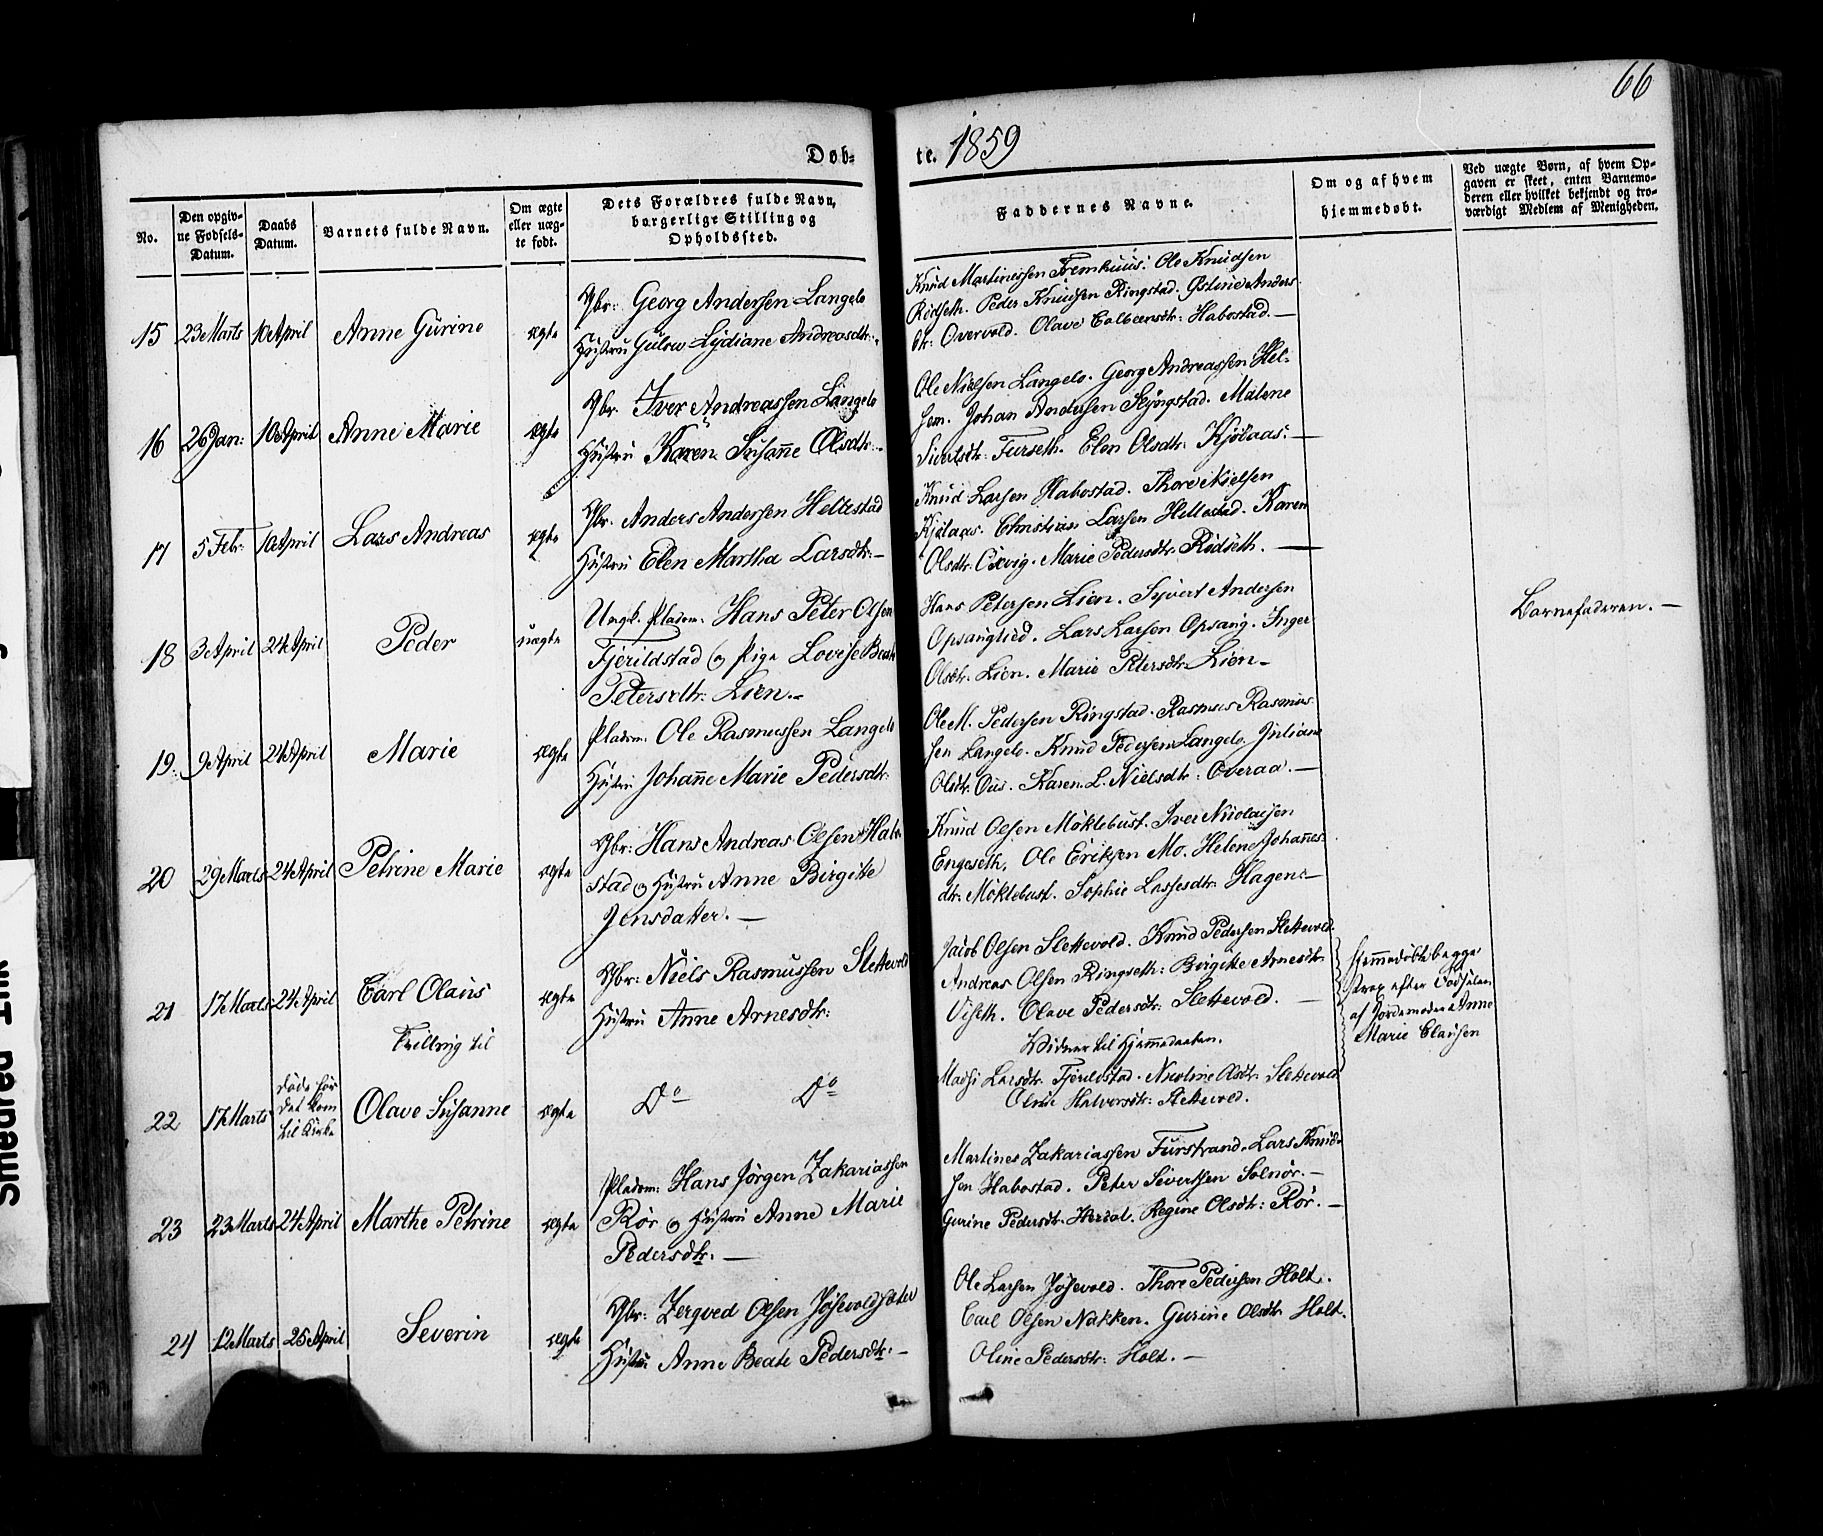 66
Døb-
te. 1859
No.
Den opgiv-
ne Fødsels-
Datum.
Daabs
Datum.
Barnets fulde Navn.
Om ægte
eller uæg-
te født.
Dets Forældres fulde Navn,
borgerlige Stilling og
Opholdssted.
Faddernes Navne.
Om og af hvem
hjemmedøbt.
Ved uægte Børn, af hvem Op-
gaven er skeet, enten Barnemo-
deren eller hvilket bekjendt og tro-
værdigt Medlem af Menigheden.
15 23 Marts 10 April Anne Gurine ægte
Gbr: Georg Andersen Langelo
Hustru Gulow Lydiane Andreasdtr:
Knud Martinussen Fremhuus. Ole Knudsen
Rødseth. Peder Knudsen Ringstad. Anders
dtr: Overvold. Olave Habostad.
16 26 Jan: 10 April Anne Marie ægte
Gbr. Iver Andreassen Langelo
Hustru Karen Susanne Olsdtr:
Ole Nielsen Langelo. Georg Andreassen Hel-
sem. Johan Andersen Skjøngstad. Malene
Sivertsdtr: Furseth. Elen Olsdtr: Kjølaas.
17 5 Febr. 10 April Lars Andreas ægte
Gbr. Anders Andersen Hellestad
Hustru Elen Martha Larsdtr:
Knud Larsen Habostad. Thore Nielsen
Kjølaas. Christian Larsen Hellestad. Karen
Olsdtr. Marie Pedersdtr. Rødseth.
18 3 April 24 April Peder uægte
Ungk. Pladsm. Hans Peter Olsen
Fjerildstad og Pige Lovise Beate
Petersdtr: Lien.
Hans Petersen Lien. Syvert Andersen
Opsanglied. Lars Larsen Opsang. Inger
Olsdtr. Lien. Marie Petersdtr. Lien
Barnefaderen.
19 9 April 24 April Marie ægte
Pladsm. Ole Rasmussen Langelo
Hustru Johanne Marie Pedersdtr.
Ole M. Pedersen Ringstad. Rasmus Rasmus-
sen Langelo. Knud Pedersen Langelo. Juliane
Olsdtr. Karen L. Nielsdtr: Overaa.
20 29 Marts 24 April Petrine Marie ægte
Gbr: Hans Andreas Olsen Habo-
stad og Hustru Anne Birgitte
Jensdatter.
Knud Olsen Møklebust. Iver Nicolaysen
Engeseth. Ole Eriksen Mo. Helene Johannes-
dtr: Møklebust. Sophie Lassesdtr. Hagen
21 17 Marts 24 April Carl Olaus ægte
Tvilling til
Gbr: Niels Rasmussen Slettevold
Hustru Anne Arnesdtr:
Jacob Olsen Slettevold. Knud Pedersen Slettevold.
Andreas Olsen Ringseth: Birgitte Arnesdtr.
Viseth. Olave Pedersdtr: Slettevold.
Hjemmedøbte begge
strax efter Fødselen
af Jordemoder Anne
Marie Clausen
Vidner til Hjemmedaaben.
22 17 Marts døde før
det kom
til Kirke Olave Susanne ægte
Do Do
Larsdtr. Fjerildstad. Nicoline Olsdtr. Slettevold
Halvorsdtr: Slettevold.
23 23 Marts 24 April Marthe Petrine ægte
Pladsm: Hans Jørgen Zakariassen
Rør og Hustru Anne Marie
Pedersdtr.
Martines Zakariassen Furstrand. Lars Knud-
sen Habostad. Peter Sivertsen Solnør.
Gurine Pedersdtr. Regine Olsdtr: Rør.
24 12 Marts 25 April Severin ægte
Gbr: Zerqved Olsen Jøsevoldsæter
Hustru Anne Beate Pedersdtr:
Ole Larsen Jøsevold. Thore Pedersen Holt.
Carl Olsen Nakken. Gurine Olsdtr. Holt.
Oline Pedersdtr: Holt.